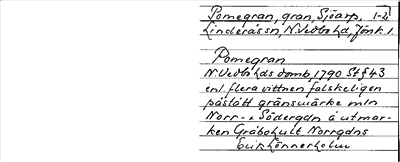 Pomegran, gran, Sjöarp, 1-2
Linderås sn, N. Vedbo hd, Jönk. l.
Pomegran
N. Vedbo hds domb, 1790 St § 43
enl. flera vittnen falskeligen
påstått gränsmärke mln
Norr- o Södergdn å utmar-
ken Gråbohult Norrgdns
Erik Lönnerholm